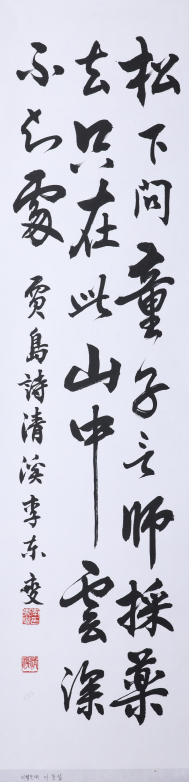 松下問童子言師採藥
去只在此山中雲深
不知處
賈島詩清溪李東燮